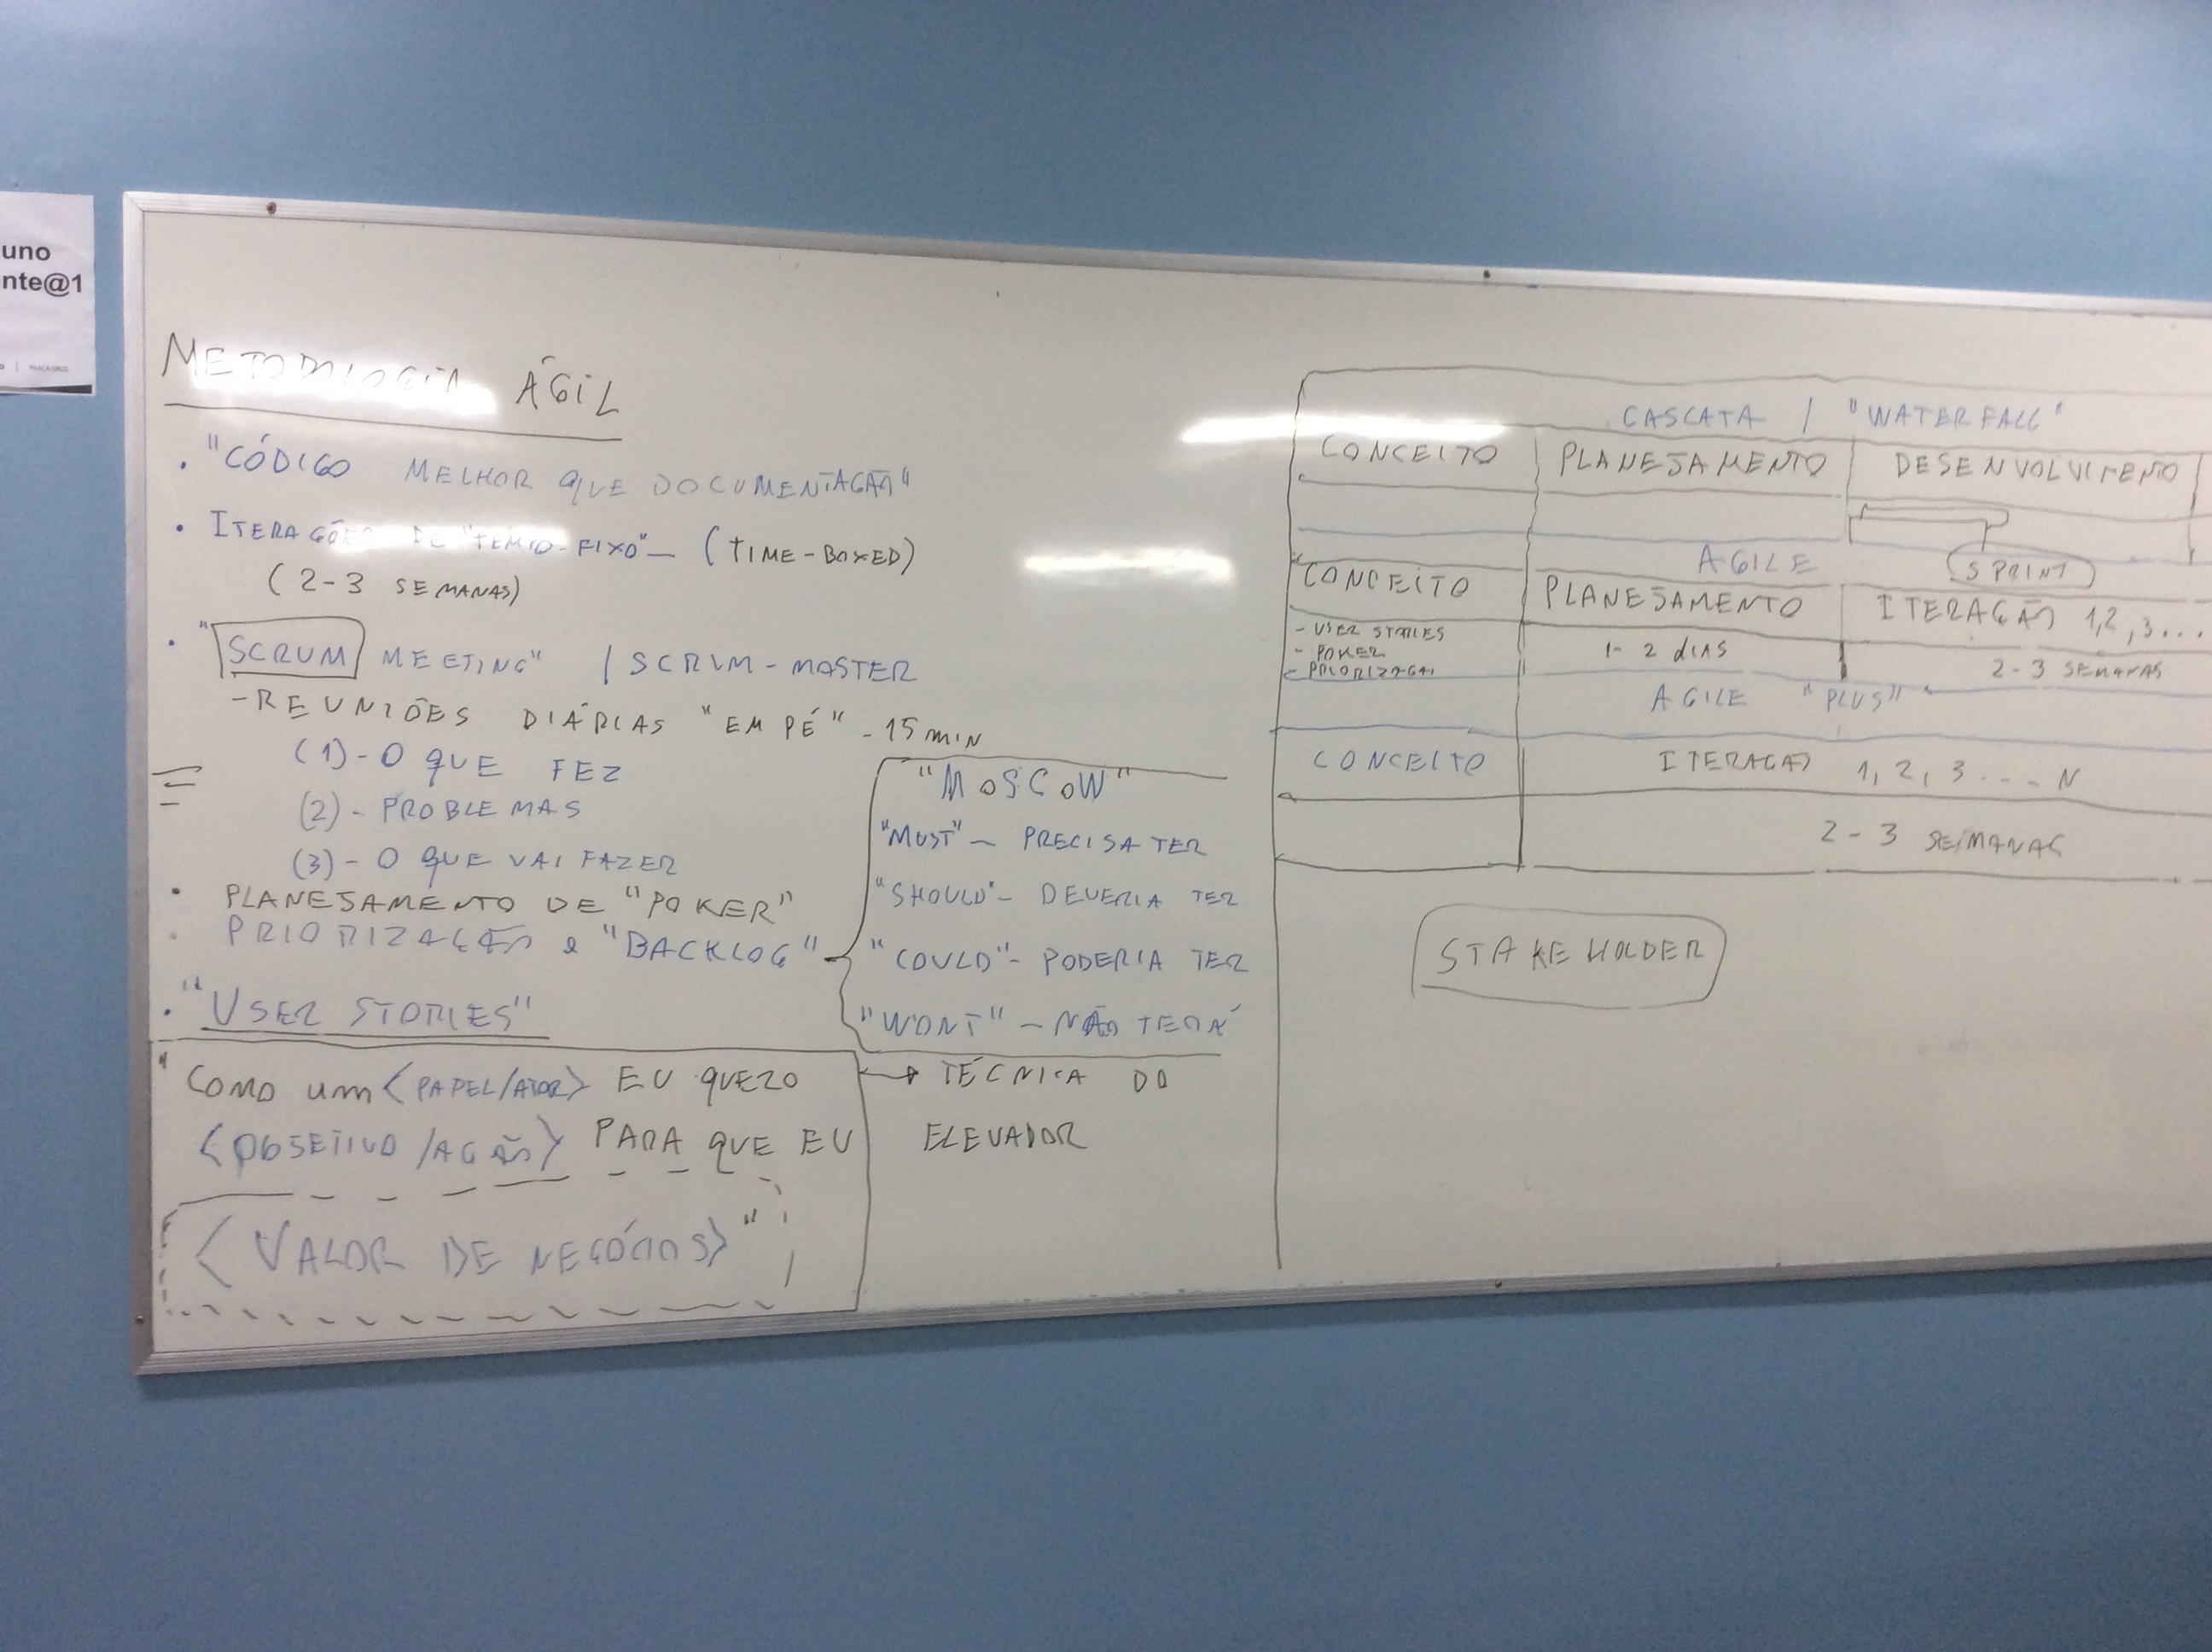 uno
nte@1
METODOLOGIA ÁGIL
• "CÓDIGO MELHOR QUE DOCUMENTAÇÃO"
• ITERAÇÕES DE "TEMPO-FIXO" — (TIME-BOXED)
(2-3 SEMANAS)
• "SCRUM MEETING" / SCRUM-MASTER
- REUNIÕES DIÁRIAS "EM PÉ" - 15 min
(1) - O QUE FEZ
(2) - PROBLEMAS
(3) - O QUE VAI FAZER
• PLANEJAMENTO DE "POKER"
• PRIORIZAÇÃO e "BACKLOG"
• "USER STORIES"
"COMO um <PAPEL/ATOR> EU QUERO
<OBJETIVO/AÇÃO> PARA QUE EU
<VALOR DE NEGÓCIOS>"
"MoSCoW"
"MUST" — PRECISA TER
"SHOULD" — DEVERIA TER
"COULD" - PODERIA TER
"WONT" — NÃO TERÁ
→ TÉCNICA DO
ELEVADOR
CASCATA / "WATERFALL"
CONCEITO PLANEJAMENTO DESENVOLVIMENTO
AGILE SPRINT
CONCEITO PLANEJAMENTO ITERAÇÃO 1, 2, 3...
- USER STORIES
- POKER
- PRIORIZAÇÃO
1-2 dIAS
2-3 SEMANAS
AGILE "PLUS"
CONCEITO ITERAÇÃO 1, 2, 3 ... N
2-3 SEMANAS
STAKEHOLDER